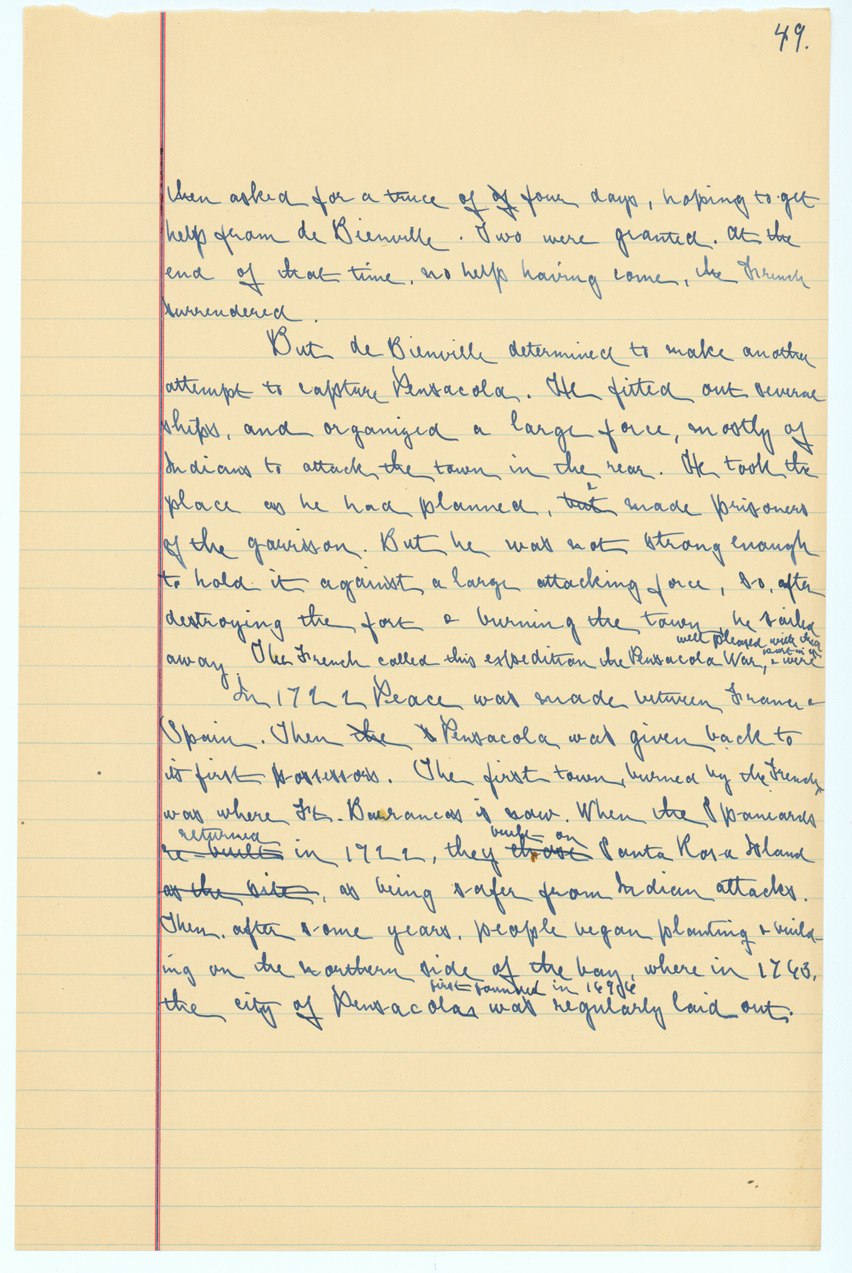 49.
then asked for a truce of of four days, hoping to get
help from de Bienville. Two were granted. At the
end of that time, no help having come, the French
surrendered.
But de Bienville determined to make another
attempt to capture Pensacola. He fitted out several
ships, and organized a large force, mostly of
Indians to attack the town in the rear. He took the
place as he had planned, but & made prisoners
of the garrison. But he was not strong enough
to hold it against a large attacking force, so, after
destroying the fort & burning the town, he sailed
well pleased with their
part in it
away. The French called this expedition the Pensacola War, & were
In 1722 Peace was made between France &
Spain. Then the s Pensacola was given back to
its first possessors. The first town, burned by the French,
was where Ft. Barrancas is now. When the Spaniards
returned built on
re-built in 1722, they chose Santa Rosa Island
as the site, as being safer from Indian attacks.
Then, after some years, people began planting & build-
ing on the northern side of the bay, where in 1763,
first founded in 1696
the city of Pensacola was regularly laid out.